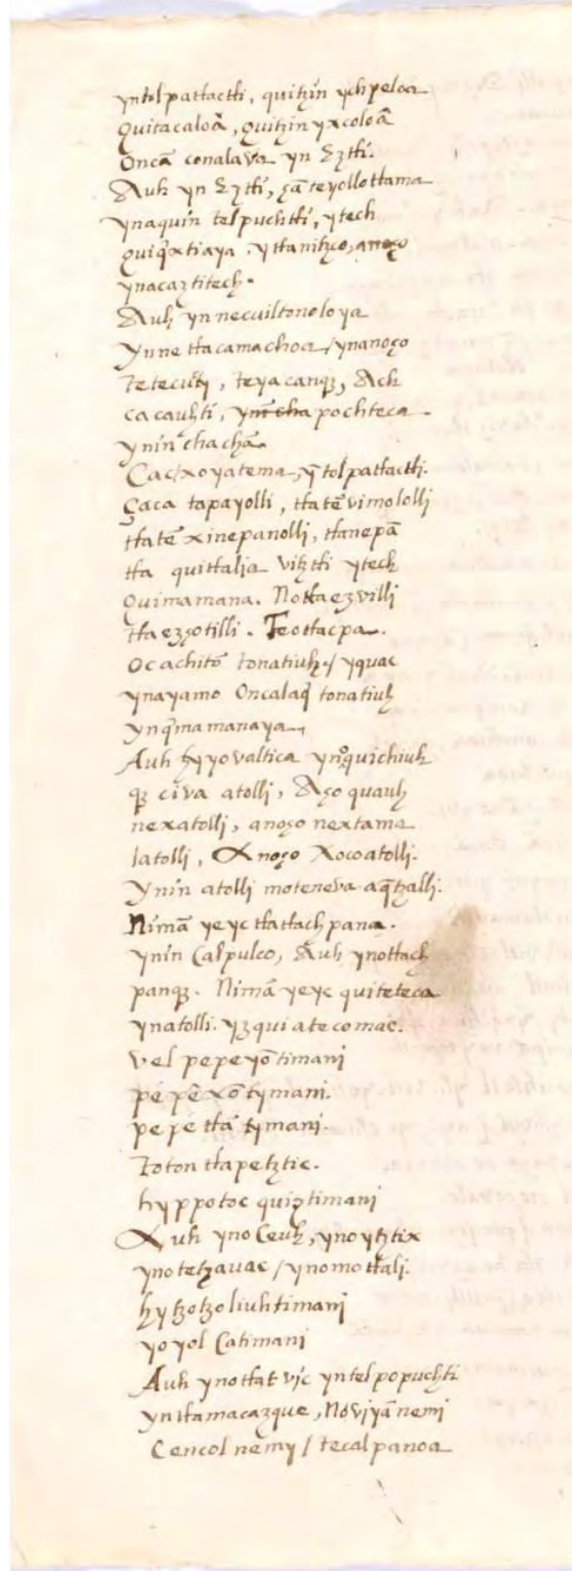 yntolpattactli, quitzin ychpeloa
Quitacaloā, Quitzin yxcoloā
Oncā conalava yn Eztli.
Auh yn Eztli, çā teyollotlama
ynaquin telpuchtli, ytech
quiq̄xtiaya. ytlanitzco, anoço
ynacaztitech.
Auh ynnecuiltonoloya
Ynnetlacamachoa, ynanoço
tetecuti, teyacanq̄, Ach
cacauhti, pochteca.
ynin chachā.
Cacxoyatema, y tolpattactli.
Çaca tapayolli, tlatēvimololli
tlatē xinepanolli, tlanepā
tla quitlalia vitztli ytech
Quimamana. Notlaezvilli
tlaezçotilli. Teotlacpa.
ocachitō tonatiuh / yquac
ynayamo Oncalaq̄ tonatiuh
ynq̄mamanaya.
Auh hyyovaltica ynoquichiuh
q̄ civa atolli, Aço quauh
nexatolli, anoço nextama
latolli, Anoço Xocoatolli.
Ynin atolli moteneva aq̄tzalli.
Nimā yeyc tlatlachpana.
ynin Calpulco, Auh ynotlach
panq̄. Nimā yeyc quiteteca
ynatolli. yzqui atecomac.
vel pepeyōtimani
pepēxōtymani.
pepētlātymani.
totontlapetztic.
hyppotoc quiztimani
Auh ynoCeuh, ynoytztix
ynotetzavac / ynomotlali.
hytzotzoliuhtimani
yoyolCatimani
Auh ynotlatvic yntelpopuchti
yntlamacazque, Noviyā nemi
Cencolnemy / tecalpanoa